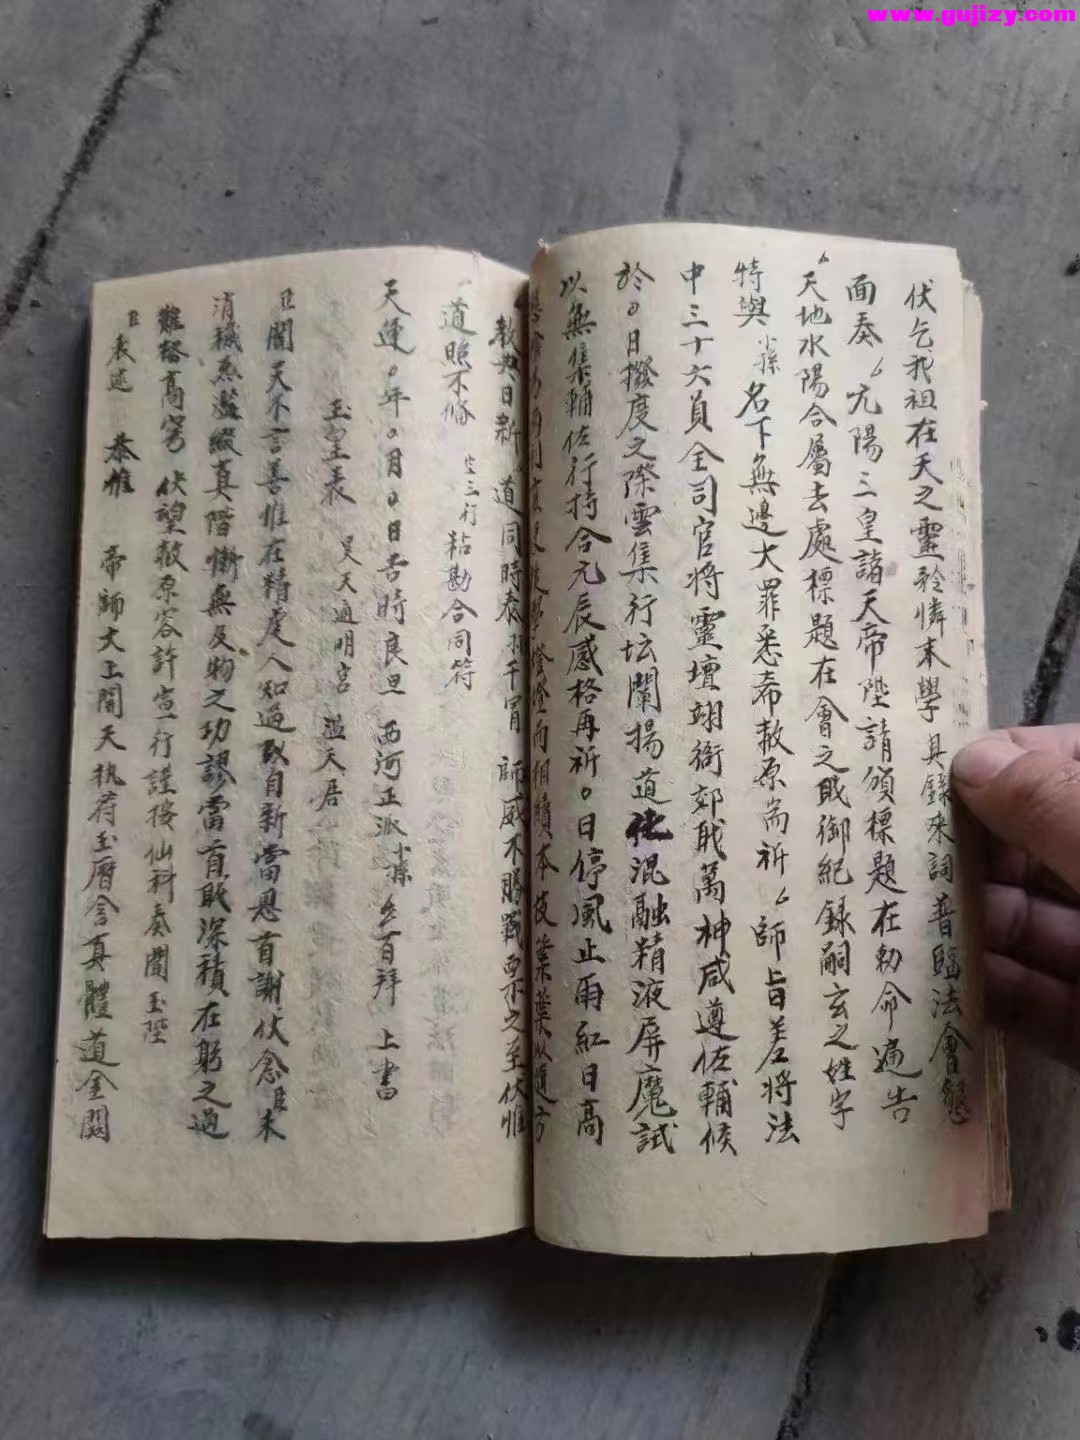 www.gujizy.com
伏乞我祖在天之靈矜憐末學 具錄來詞普臨法會懇
面奏 元陽三皇諸天帝陛請頒標題在勅命遍告
天地水陽合屬去處標題在會之戝御紀録嗣玄之姓字
特與小孫名下無邊大罪悉希赦原耑祈 師旨差將法
中三十六員全司官將靈壇翊衙郊戝萬神咸遵佐輔候
於〇日撥度之際雲集行坛闡揚道化混融精液屏魔試
以無集輔佐行持合元辰感格再祈〇日停風止雨紅日高
燈燈而相續本枝葉葉以
教典日新 道同時泰 干冐 師威不勝戰栗之至伏惟
道照不俻 空三行 粘勘合同符
天運〇年〇月〇日吉時良旦 西河正派小孫厶百拜 上書
玉皇表 昊天通明宮 滥天居
臣聞天不言善惟在精虔人知過改自新當思首謝伏念臣末
消穢炁滥綴真階慚無及物之功謬當首戝深積在躬之過
難撘高穹 伏望敇原容許宣行謹按仙科奏聞玉陛
臣表述 恭惟 帝師大上開天执苻玉曆含真體道金闕